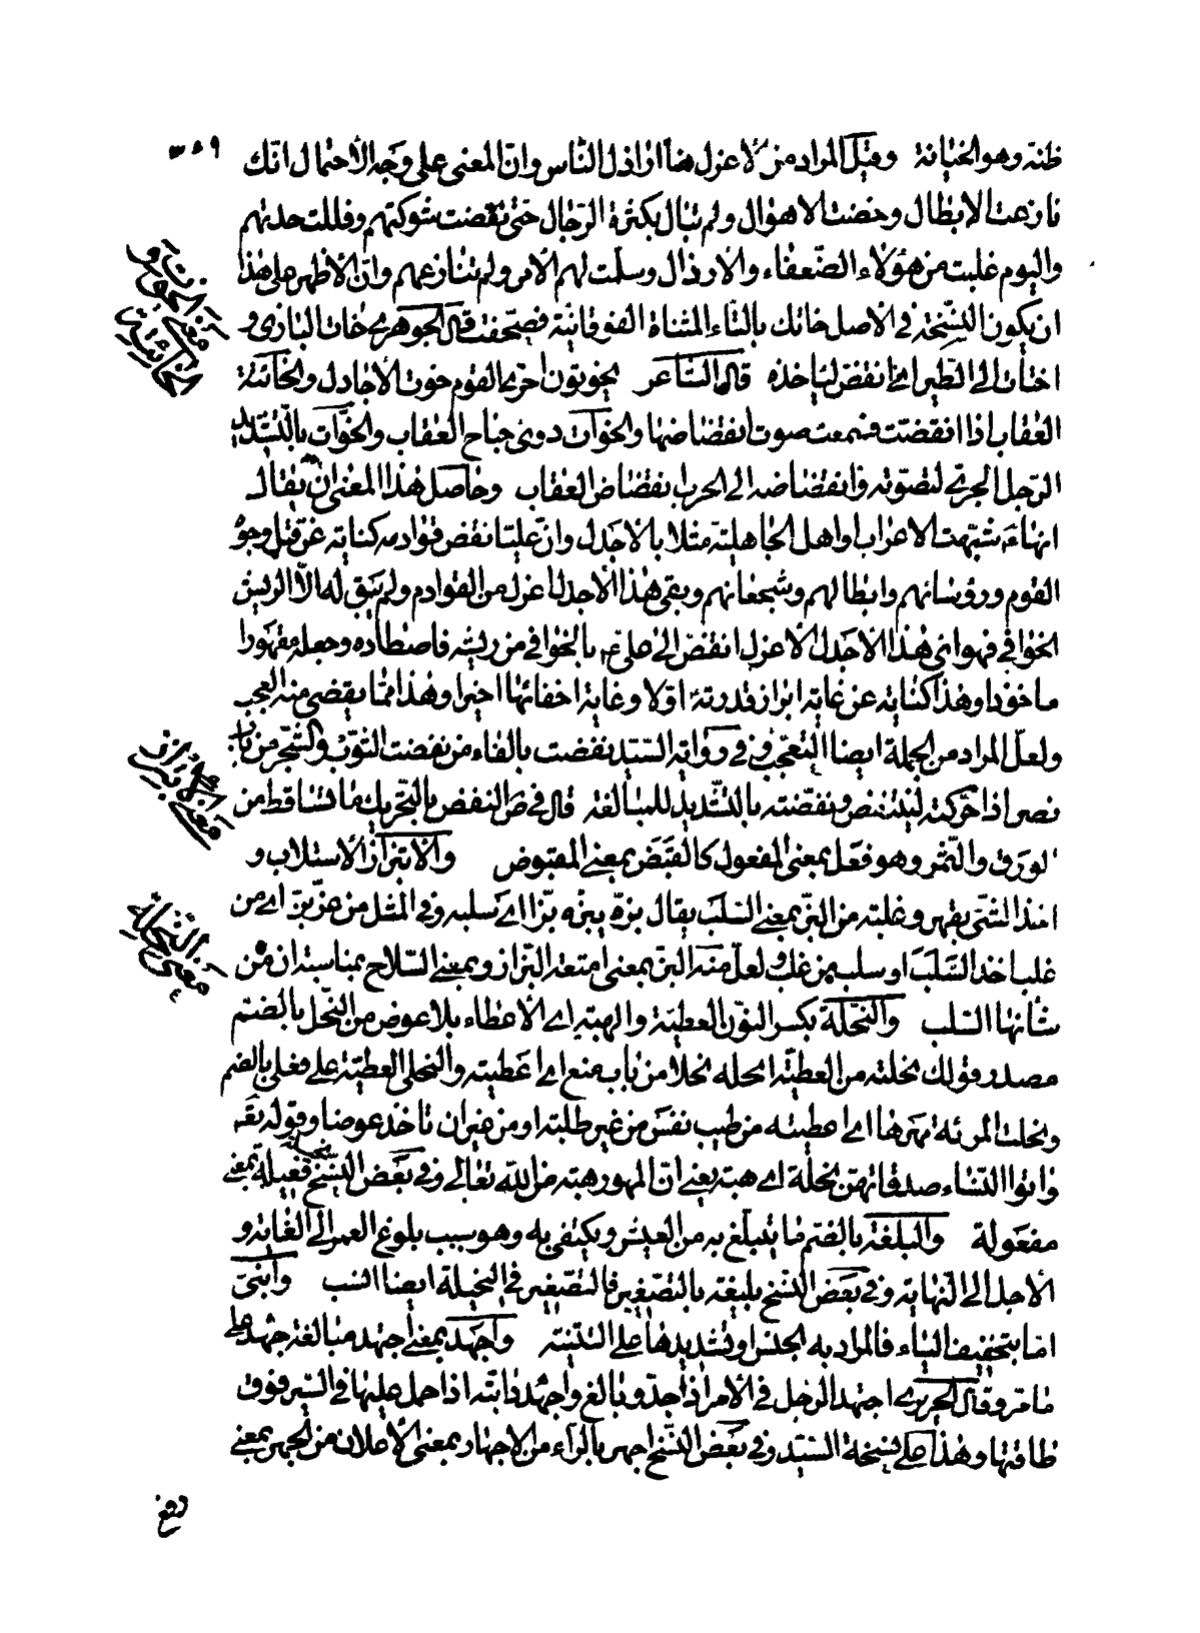 ٣٥٩
ظنه وهو الخيانة وقيل المراد من الأعزل هنا اراذل الناس وان المعنى على وجه الاحتمال انك
نازعت الابطال وخضت الاهوال ولم تبال بكثرة الرجال حتى نقضت شوكتهم وفللت حدتهم
واليوم غلبت من هؤلاء الضعفاء والارذال وسلمت لهم الامر ولم تنازعهم وان الاظهر على هذا
ان يكون النسخة في الاصل خاتك بالتاء المثناة الفوقانية فصحفت قال الجوهري خات البازى و
اختات اى الطير اى انقض لياخذه قال الشاعر يخوتون اخرى القوم خوت الأجادل والخائتة
العقاب اذا انقضت فسمعت صوت انقضاضها والخوات دوى جناح العقاب والخوات بالتشديد
الرجل الجرى لتصوته وانقضاضه الى الحرب انقضاض العقاب وحاصل هذا المعنى ان يقال
انها شبهت الاعراب او اهل الجاهلية مثلا بالأجدل وان عليا نقض قوادمه كناية عن قتل وجوه
القوم ورؤسائهم وابطالهم وشجعانهم وبقى هذا الأجدل اعزل من القوادم ولم يبق له الا الريش
الخوافي فهوى هذا الاجدل الأعزل انقض الى على بالخوافي من ريشه فاصطاده وجعله مقهورا
ماخوذا وهذا كناية عن غاية ابراز قدرته اولا وغاية اخفائها اخيرا وهذا مما يقضى منه العجب
ولعل المراد من الجملة ايضا التعجب وفي رواية السيد نفضت بالفاء من نفضت الثوب والشجر من باب
نصر اذا حركته لينتفض ونفضته بالتشديد للمبالغة قال في ص النفض بالتحريك ما تساقط من
الورق والثمر وهو فعل بمعنى المفعول كالقبض بمعنى المقبوض والابتزاز الأستلاب و
اخذ الشئ بقهر وغلبة من البز بمعنى السلب يقال بزه يبزه بزا اى سلبه وفي المثل من عز بز اى من
غلب اخذ السلب او سلب من غلب ولعل منه البز بمعنى امتعة البزاز وبمعنى السلاح بمناسبة ان من
شانها السلب والنحلة بكسر النون العطية والهبة اى الأعطاء بلا عوض من النحل بالضم
مصدر قولك نحلته من العطية انحله نحلا من باب منع اى اعطيته والنحلى العطية على فعلى بالضم
ونحلت المرئة مهرها اى اعطيته من طيب نفس من غير طلبة او من غير ان تاخذ عوضا وقوله تعـ
واتوا النساء صدقاتهن نحلة اى هبة يعنى ان المهور هبة من الله تعالى وفي بعض النسخ نحيلة فعيلة بمعنى
مفعولة والبلغة بالضم ما يتبلغ به من العيش ويكتفى به وهو سبب بلوغ العمر الى الغاية و
الأجل الى النهاية وفي بعض النسخ بليغة بالتصغير فالتصغير في النحيلة ايضا انسب وابنى
اما بتخفيف الياء فالمراد به الجنس او تشديدها على التثنية واجهد بمعنى اجتهد مبالغة جهد على
ما مر وقال الجزرى اجتهد الرجل في الأمر اذا جد وبالغ واجهد دابته اذا حمل عليها في السير فوق
طاقتها وهذا على نسخة السيد وفي بعض النسخ اجهر بالراء من الاجهار بمعنى الأعلان من الجهر بمعنى
معنى النحلة